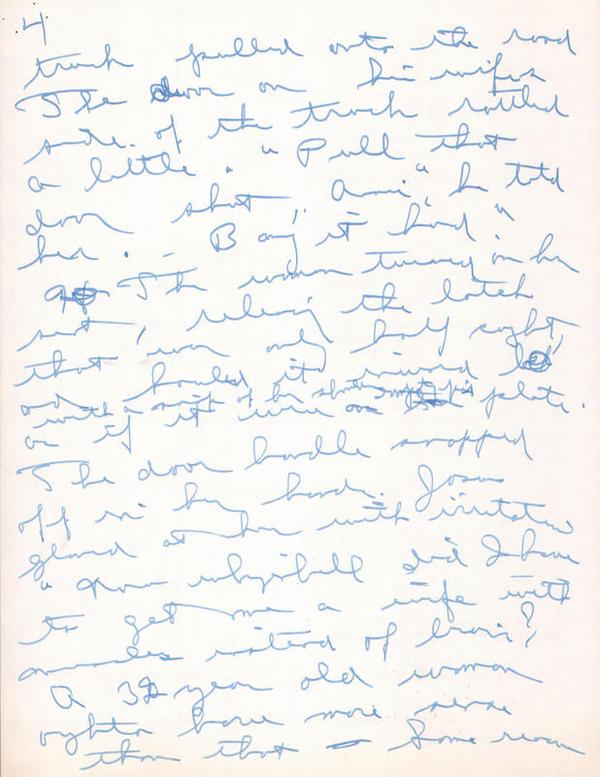 4
truck pulled onto the road
The door on his wifes
side. of the truck rattled
a little. " Pull that
door shut, Ami" he told
her. Bang it hard"
The woman turning in her
seat, releasing the latch
that was only half caught,
and hauled it inward
with a
as if it were on plate.
The door handle snapped
off in her hands. Josus
glared at her with irritation
" Now did I have
to get me a wife with
muscles instead of brains?
A 32 year old woman
oughta have more sense
than that — Some reason